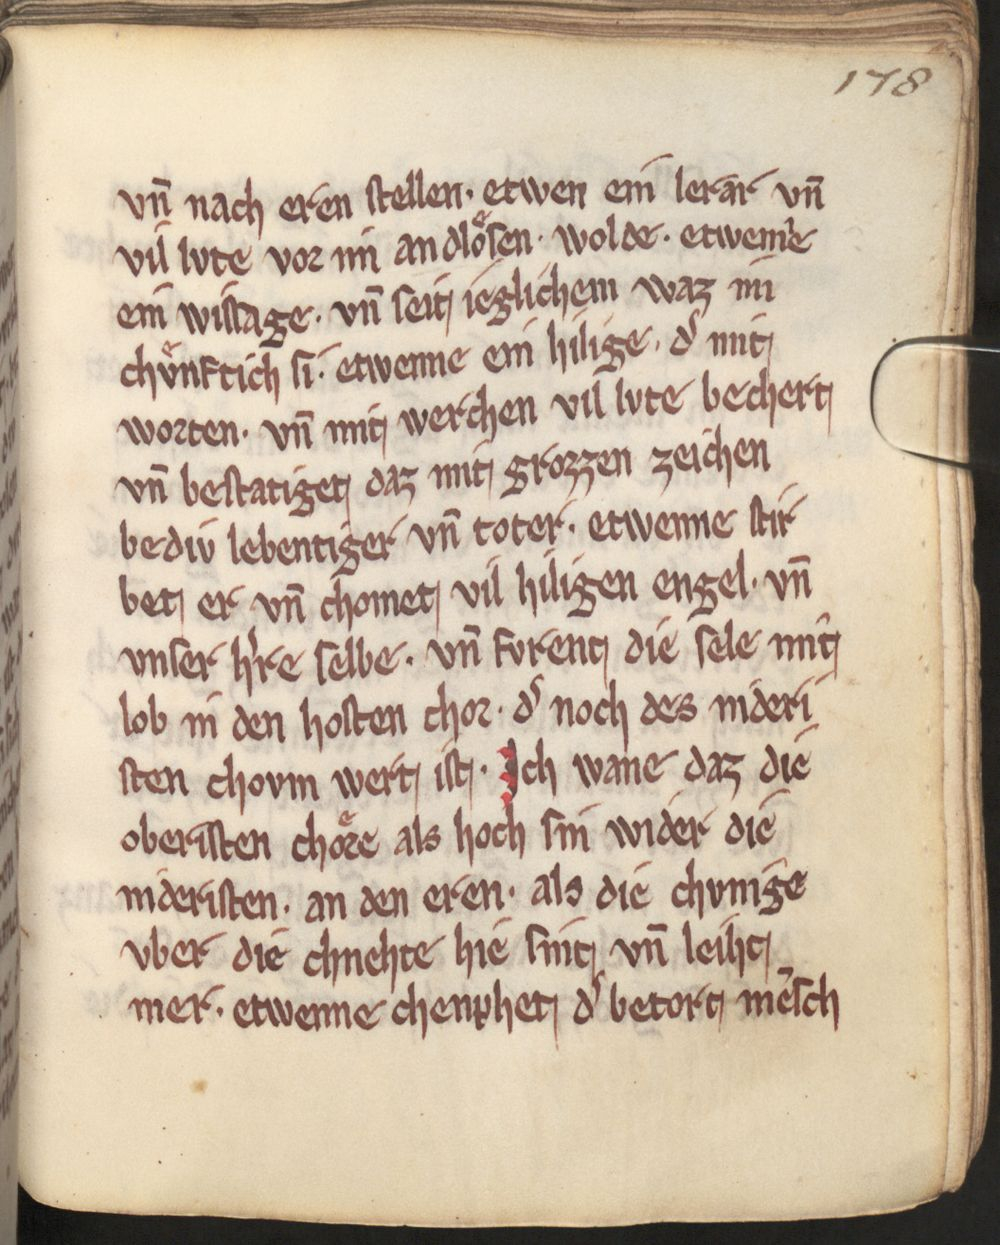 178
vn̄ nach eren stellen· etwen ein lerār vn̄
vil lvte vor im andloͤsen· wolde· etwenne
ein wissage· vn̄ seit ieglichem waz im
chvͤnftich si· etwenne ein hilige· d͛ mit
worten· vn̄ mit werchen vil lvte bechert
vn̄ bestatiget daz mit grozzen zeichen
bediv lebentiger vn̄ toter· etwenne stir
bet er vn̄ chomet vil hiligen engel· vn̄
vnser h͛re selbe· vn̄ fvrent die sele mit
lob in den hosten chor· d͛ noch des nideri
sten chovm wert ist· Ich wane daz die
oberisten choͤre als hoch sin wider die
nideristen· an den eren· als die chvnige
vber die chnehte hie sint vn̄ leiht
mer· etwenne chenphet d͛ betort mēsch